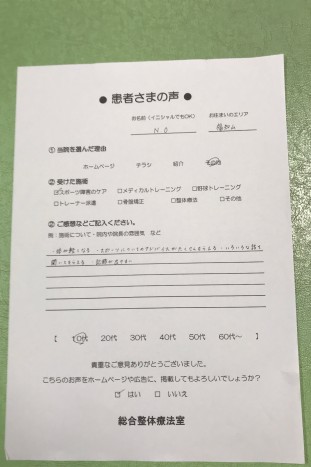 ● 患者さまの声 ●
お名前(イニシャルでもOK) お住まいのエリア
N.O
① 当院を選んだ理由
ホームページ チラシ 紹介 その他
② 受けた施術
☑スポーツ障害のケア □メディカルトレーニング □野球トレーニング
□トレーナー派遣 □骨盤矯正 □整体療法 □その他
② ご感想などご記入ください。
例:施術について・院内や院長の雰囲気 など
【 10代 20代 30代 40代 50代 60代~ 】
貴重なご意見ありがとうございました。
こちらのお声をホームページや広告に、掲載してもよろしいでしょうか?
☑ はい □ いいえ
総合整体療法室